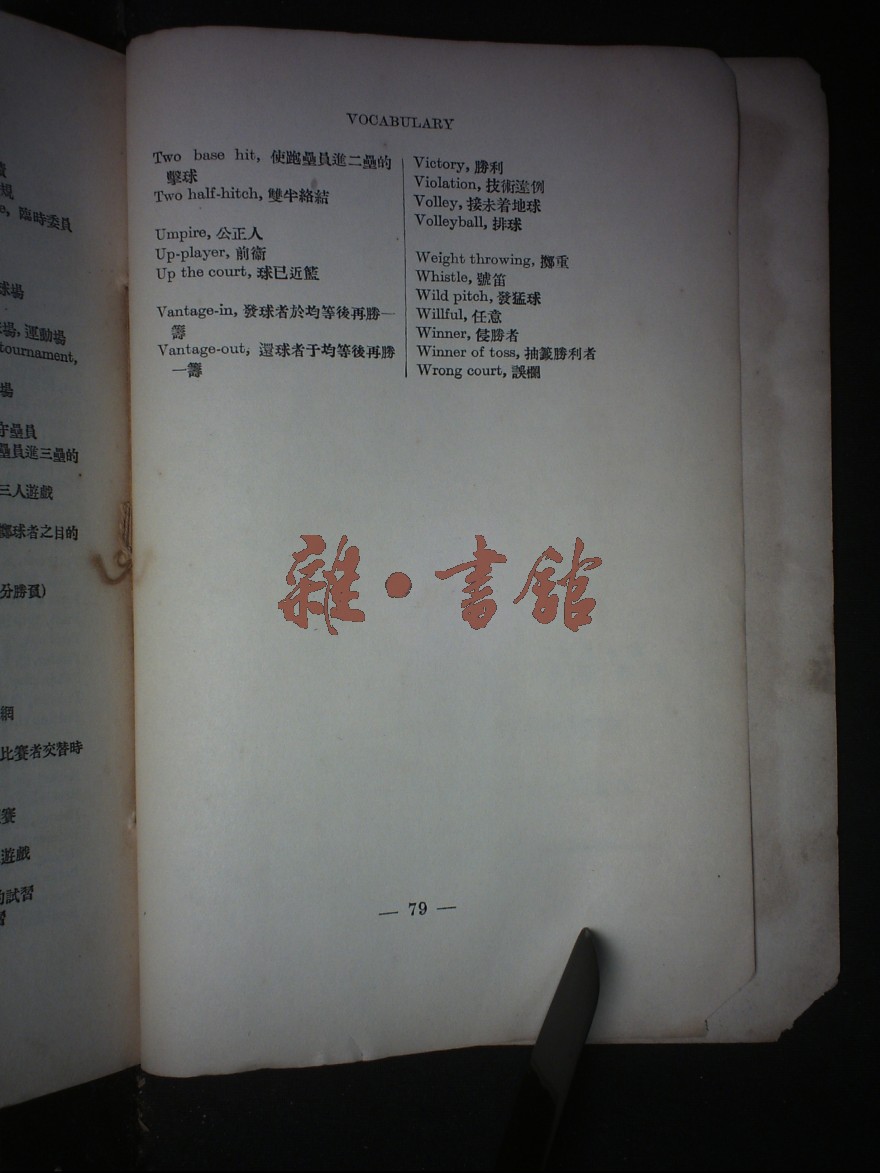 VOCABULARY
Two base hit, 使跑壘員進二壘的
擊球
Two half-hitch, 雙半絡結
Umpire, 公正人
Up-player, 前衞
Up the court, 球已近籃
Vantage-in, 發球者於均等後再勝一
籌
Vantage-out, 還球者于均等後再勝
一籌
Victory, 勝利
Violation, 技術違例
Volley, 接未着地球
Volleyball, 排球
Weight throwing, 擲重
Whistle, 號笛
Wild pitch, 發猛球
Willful, 任意
Winner, 優勝者
Winner of toss, 抽籤勝利者
Wrong court, 誤欄
— 79 —
規
e, 臨時委員
球場
場, 運動場
tournament,
場
守壘員
壘員進三壘的
三人遊戲
擲球者之目的
分勝負)
網
比賽者交替時
賽
遊戲
的試習
習
雜·書館